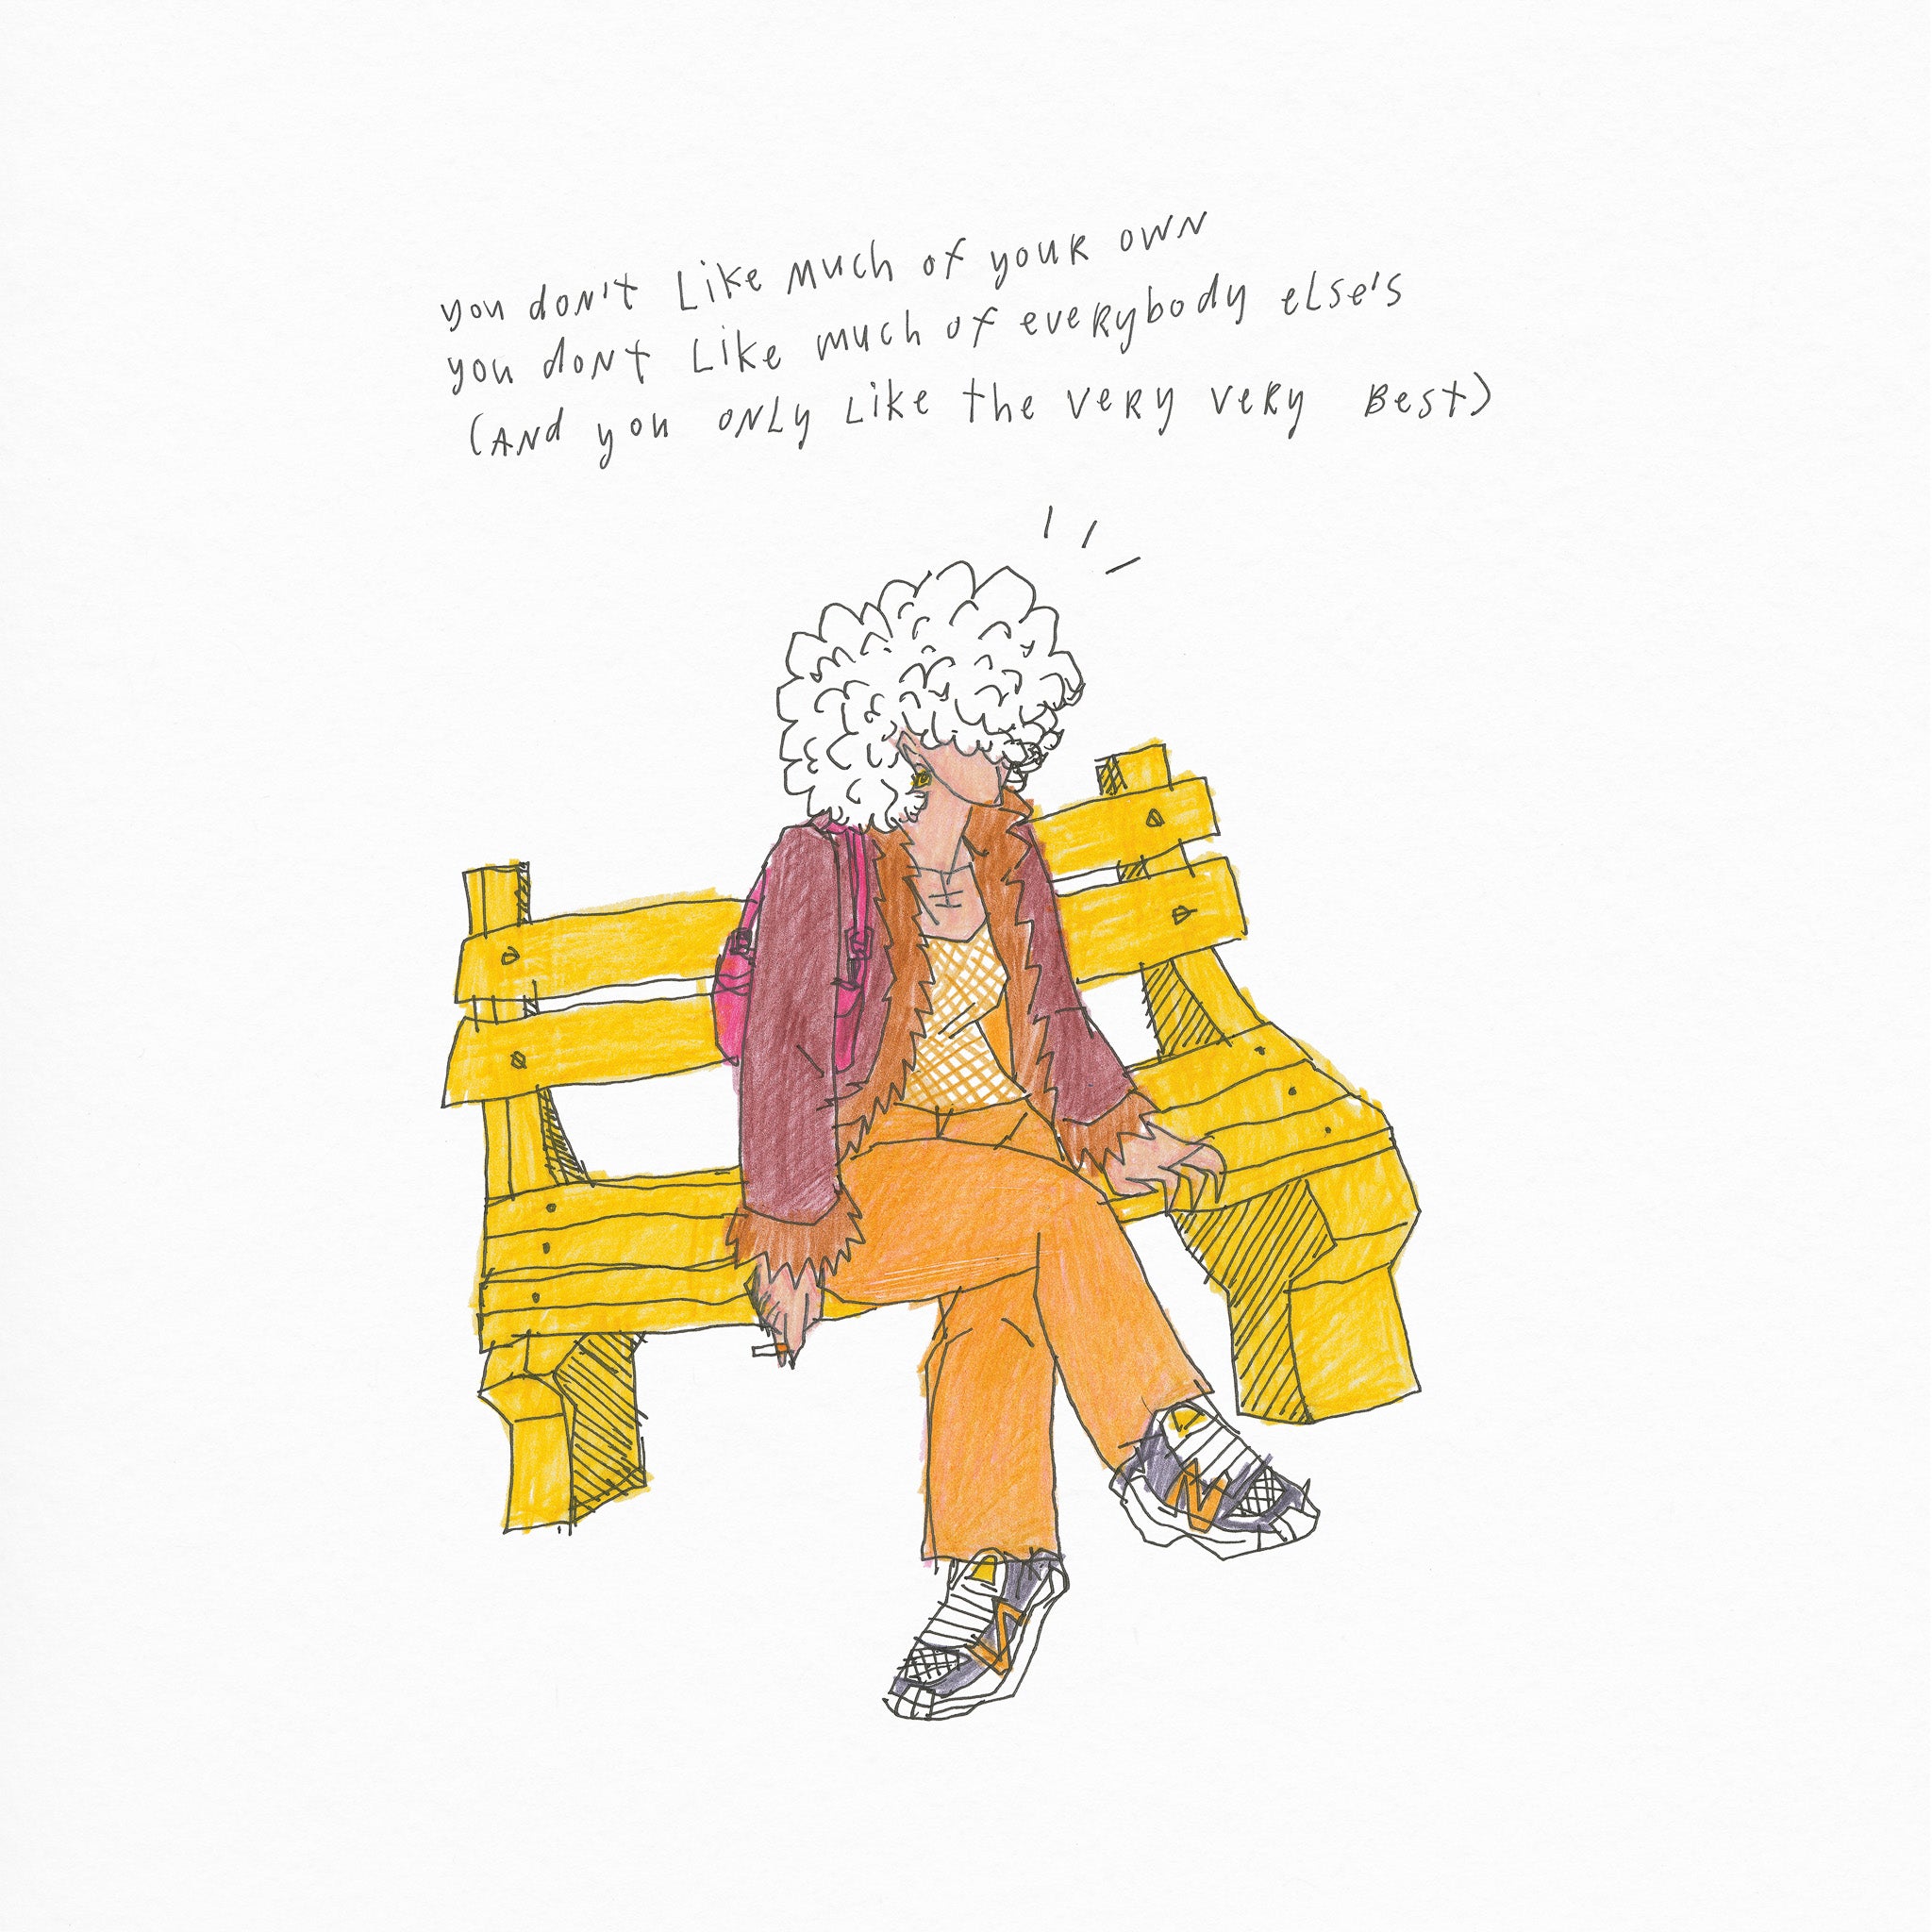 you don't Like much of your own
you dont Like much of everybody else's
(And you only Like the very very Best)
N
N